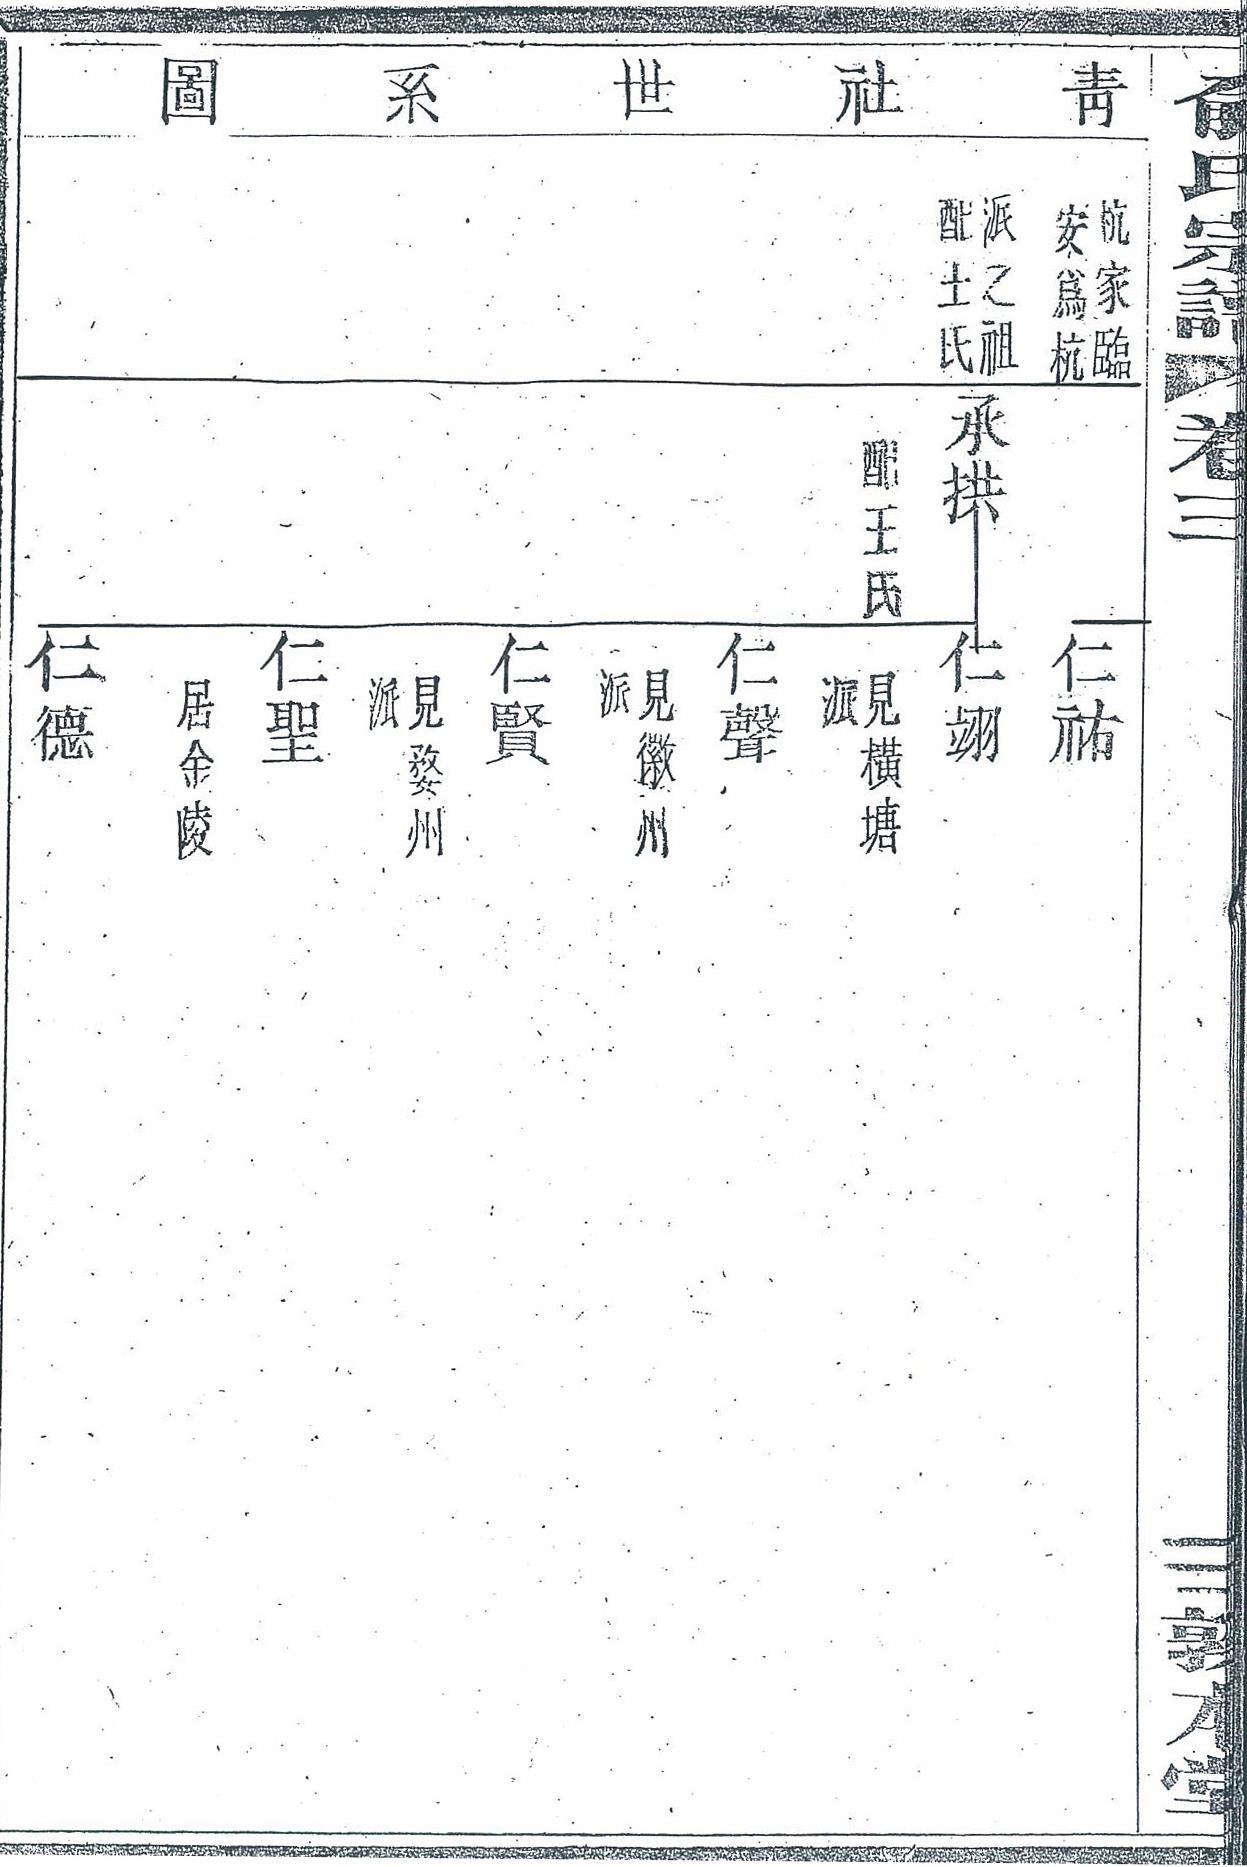 俞氏宗譜
卷三
三敦本堂
青社世系圖
杭家臨
安爲杭
派之祖
配士氏
承拱
配王氏
仁祐
仁翊
見橫塘
派
仁聲
見徽州
派
仁賢
見婺州
派
仁聖
居金陵
仁德